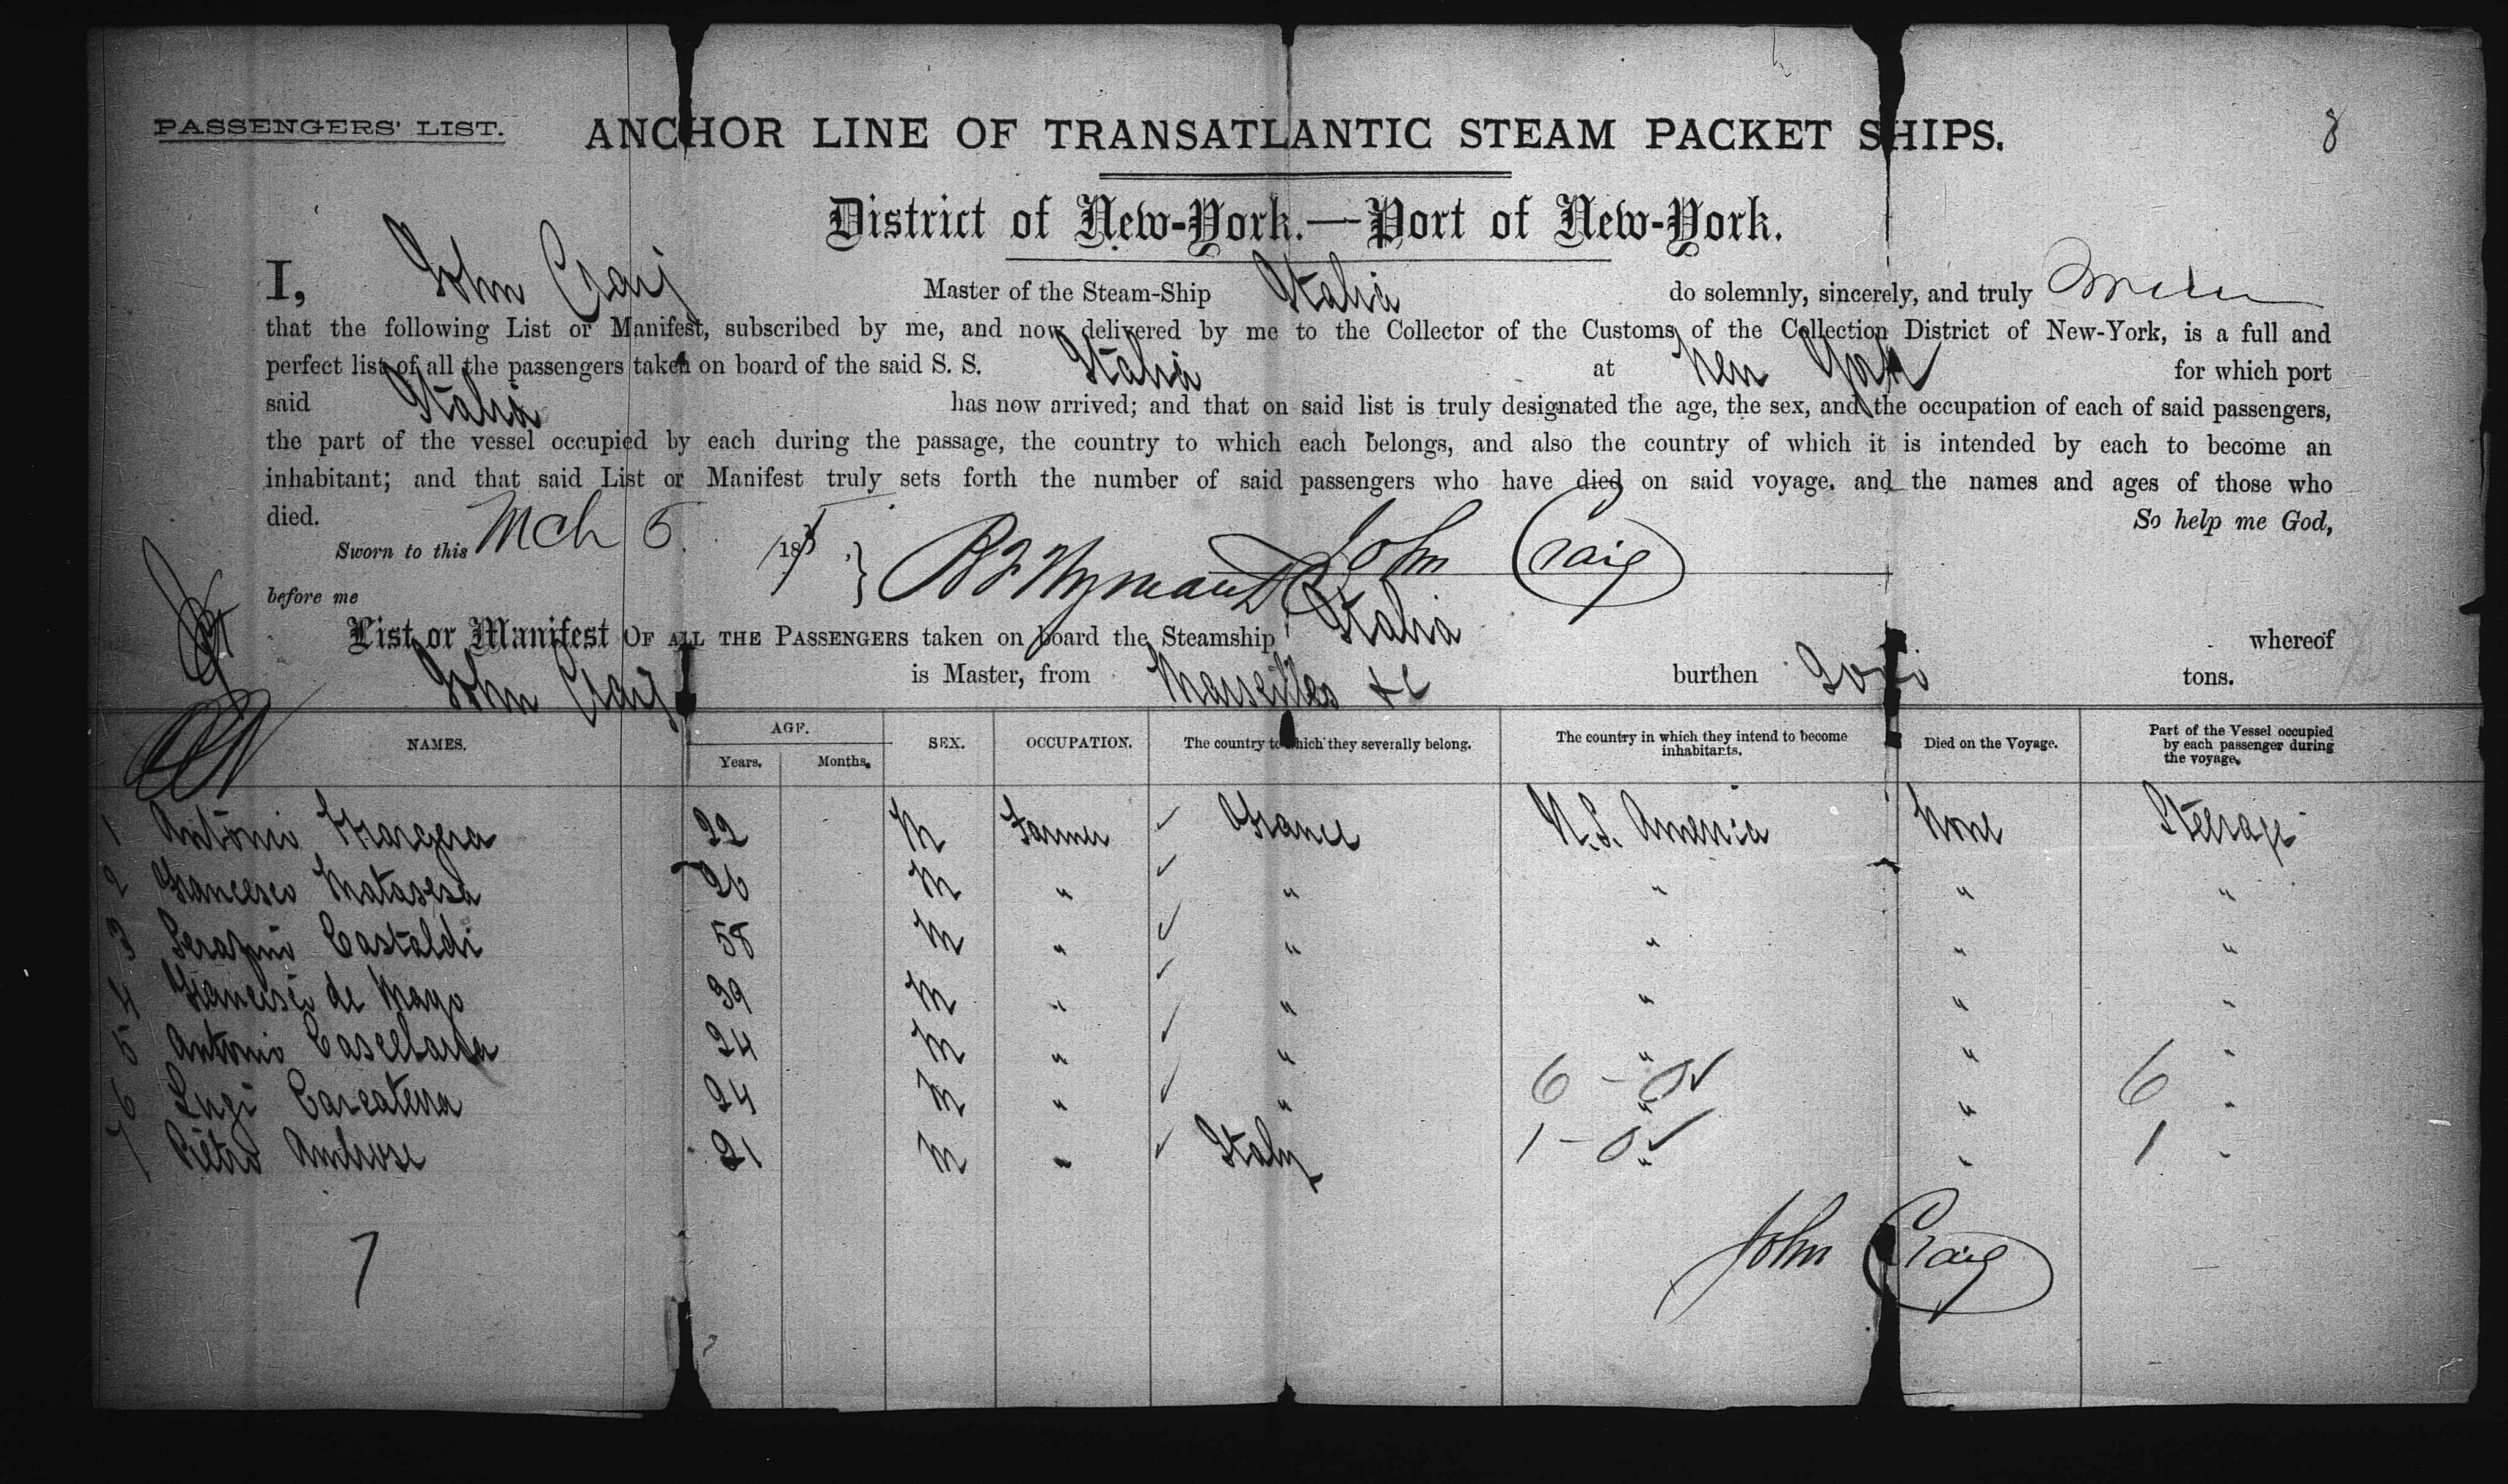 PASSENGERS' LIST.
ANCHOR LINE OF TRANSATLANTIC STEAM PACKET SHIPS.
8
District of New-York.—Port of New-York.
I, John Craig Master of the Steam-Ship Italia do solemnly, sincerely, and truly
that the following List or Manifest, subscribed by me, and now delivered by me to the Collector of the Customs of the Collection District of New-York, is a full and
perfect list of all the passengers taken on board of the said S. S. Italia at New York for which port
said Italia has now arrived; and that on said list is truly designated the age, the sex, and the occupation of each of said passengers,
the part of the vessel occupied by each during the passage, the country to which each belongs, and also the country of which it is intended by each to become an
inhabitant; and that said List or Manifest truly sets forth the number of said passengers who have died on said voyage, and the names and ages of those who
died. So help me God,
Sworn to this Mch 5 188 John Craig
before me
List or Manifest OF ALL THE PASSENGERS taken on board the Steamship Italia whereof
John Craig is Master, from Marseilles &c burthen tons.
NAMES. AGE. Years. Months. SEX. OCCUPATION. The country to which they severally belong. The country in which they intend to become inhabitants. Died on the Voyage. Part of the Vessel occupied by each passenger during the voyage.
1 Antonio 22 M Farmer ✓ France N.S. America None Steerage
2 Francesco Matasesa 26 M " ✓ " " " "
3 Serafino Castaldi 58 M " ✓ " " " "
4 de Mayo 39 M " ✓ " " " "
5 Antonio 24 M " ✓ " " " "
6 Luigi 24 M " ✓ " 6 - " " 6 "
7 Pietro Ambrose 21 M " ✓ Italy 1 - " " 1 "
7
John Craig